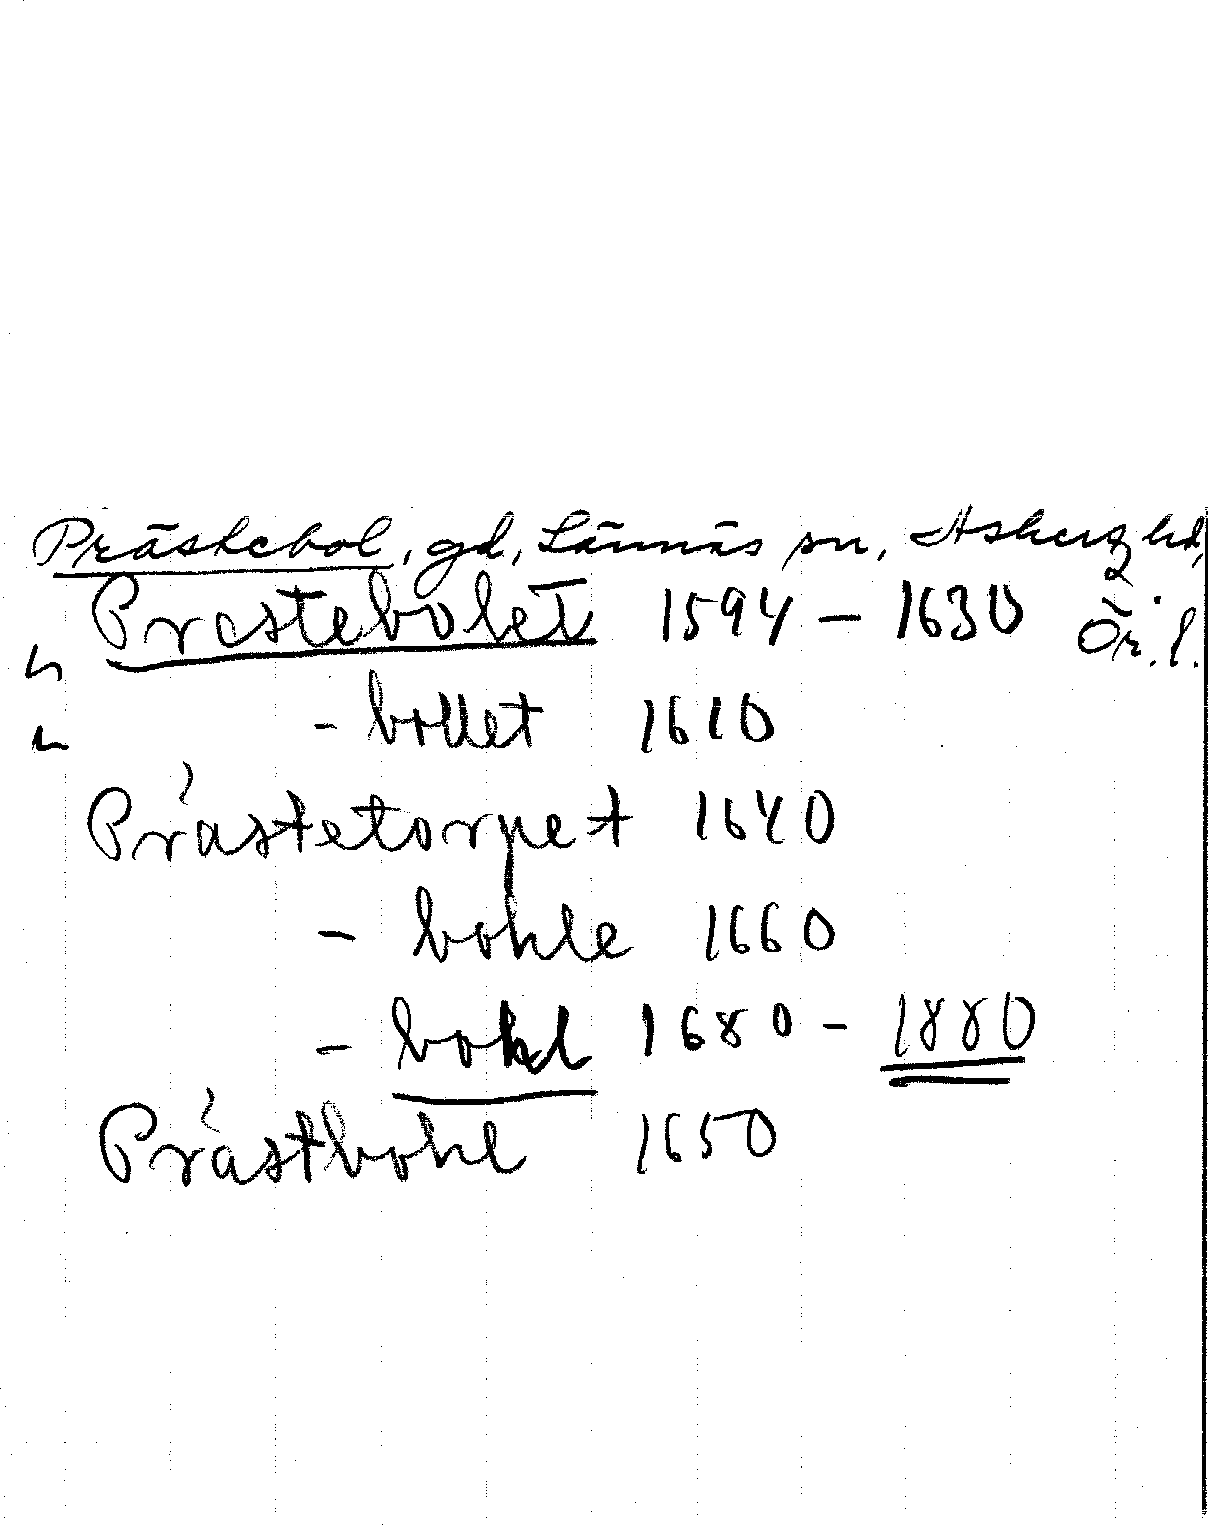 Prästebol, gd, Lännäs sn, Askers hd,
Prastebolet 1594 – 1630 Ör. l.
- bollet 1610
Prästetorpet 1640
- bohle 1660
- bohl 1680 - 1880
Prästbohl 1650